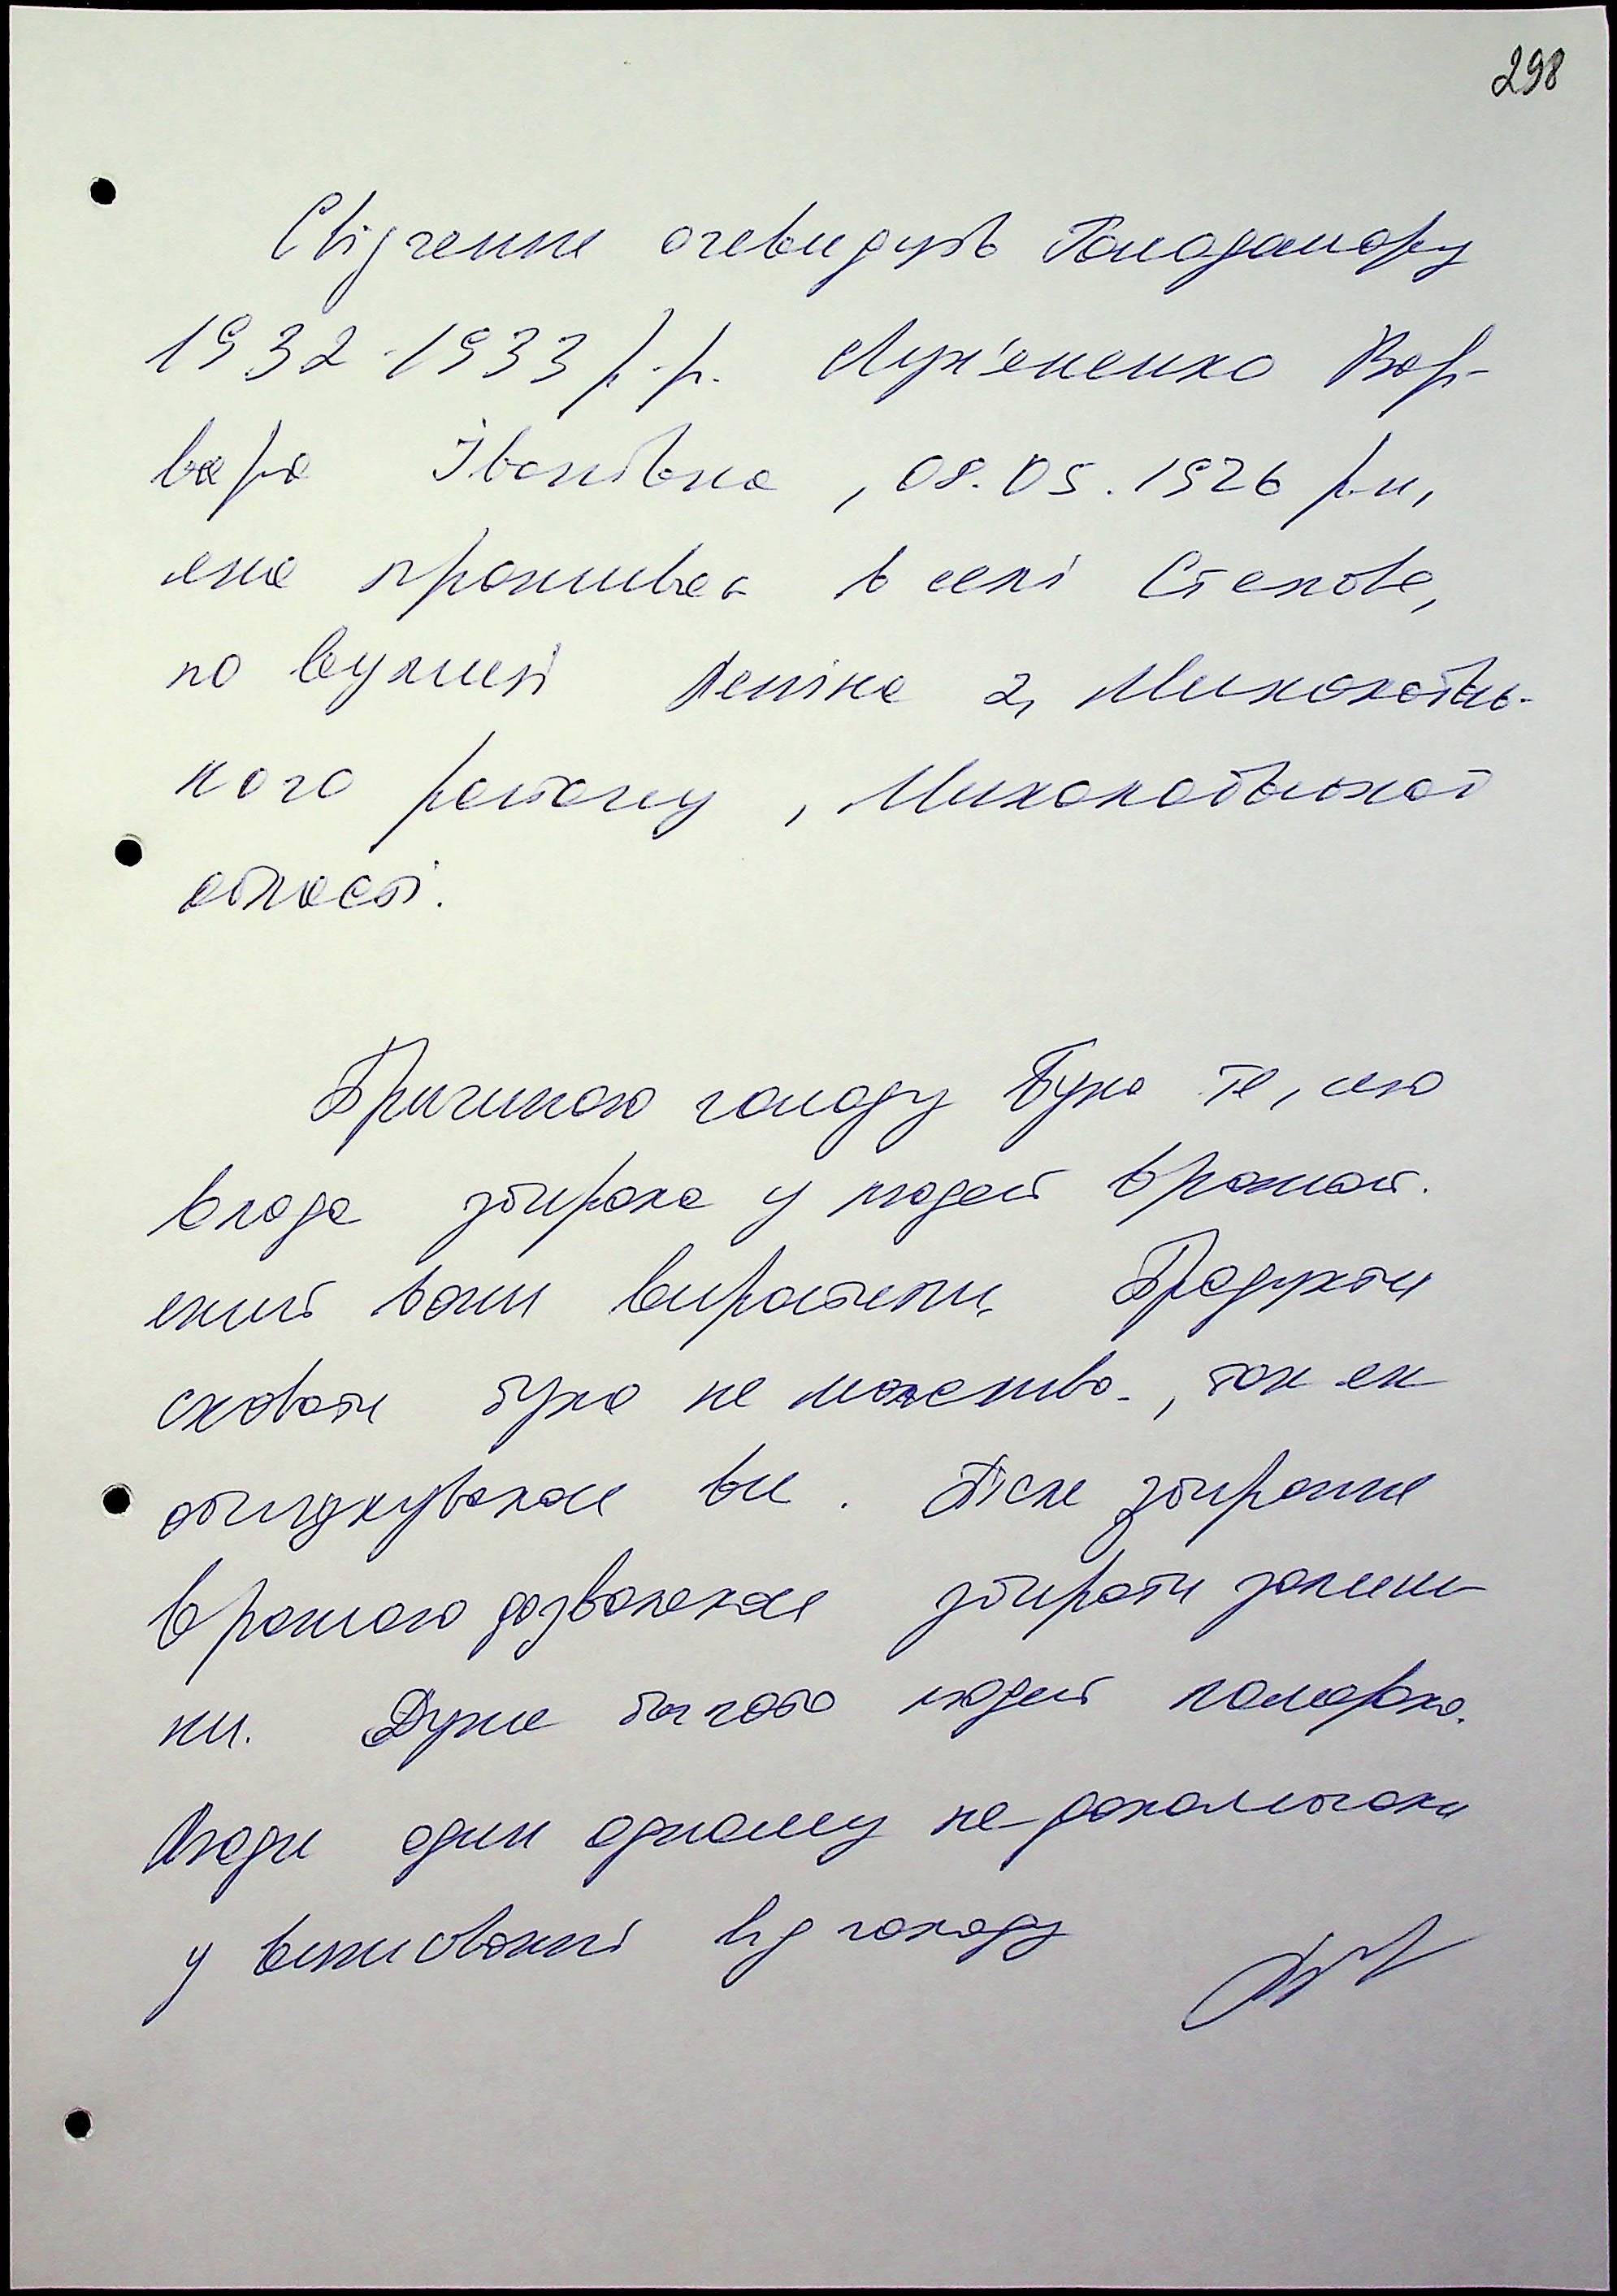 298
Свідчення очевидців Голодомору
1932-1933 р.р. Лук'яненко Вар-
вара Іванівна, 08.05.1926 р.н,
яка проживає в селі Степове,
по вулиці Леніна 2, Миколаївсь-
кого району, Миколаївської
області.
Причиною голоду було те, що
влада збирала у людей врожай.
який вони виростили. Продукти
сховати було не можливо, так як
обшукували всі. Після збирання
врожаю дозволяли збирати залиш-
ки. Дуже багато людей померло.
Люди один одному не допомагали
у виживанні від голоду